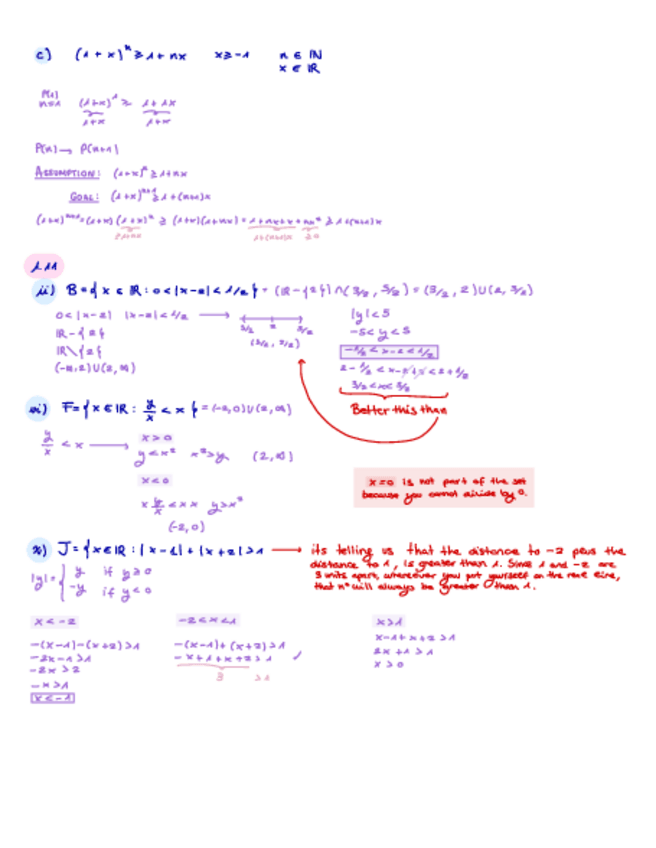 c) (1 + x)ⁿ ≥ 1 + nx x ≥ -1 n ∈ ℕ
x ∈ ℝ
P(1)
n=1 (1+x)¹ ≥ 1 + 1x
1+x 1+x
P(n) → P(n+1)
ASSUMPTION: (1+x)ⁿ ≥ 1+nx
GOAL: (1+x)ⁿ⁺¹ ≥ 1+(n+1)x
(1+x)ⁿ⁺¹ = (1+x)(1+x)ⁿ ≥ (1+x)(1+nx) = 1+nx+x+nx² ≥ 1+(n+1)x
≥1+nx 1+(n+1)x ≥0
1.11
ii) B = { x ∈ ℝ : 0 < |x-2| < 1/2 } = (ℝ - {2}) ∩ (3/2, 5/2) = (3/2, 2) ∪ (2, 5/2)
0 < |x-2| |x-2| < 1/2 →
ℝ - {2}
ℝ \ {2}
(-∞, 2) ∪ (2, ∞)
3/2 2 5/2
(3/2, 5/2)
|y| < 5
-5 < y < 5
-1/2 < x-2 < 1/2
2 - 1/2 < x-2+2 < 2 + 1/2
3/2 < x < 5/2
Better this than
vi) F = { x ∈ ℝ : 4/x < x } = (-2, 0) ∪ (2, ∞)
4/x < x → x > 0
4 < x² x² > 4 (2, ∞)
x < 0
x 4/x < x x 4 > x²
(-2, 0)
x = 0 is not part of the set
because you cannot divide by 0.
x) J = { x ∈ ℝ : |x-1| + |x+2| > 1 → its telling us that the distance to -2 plus the
distance to 1, is greater than 1. Since 1 and -2 are
3 units apart, whereever you put yourself on the real line,
that nº will always be greater than 1.
|y| = { y if y ≥ 0
-y if y < 0
x < -2
-(x-1)-(x+2) > 1
-2x-1 > 1
-2x > 2
-x > 1
x < -1
-2 < x < 1
-(x-1)+(x+2) > 1
-x+1+x+2 > 1 ✓
3 > 1
x > 1
x-1+x+2 > 1
2x + 1 > 1
x > 0